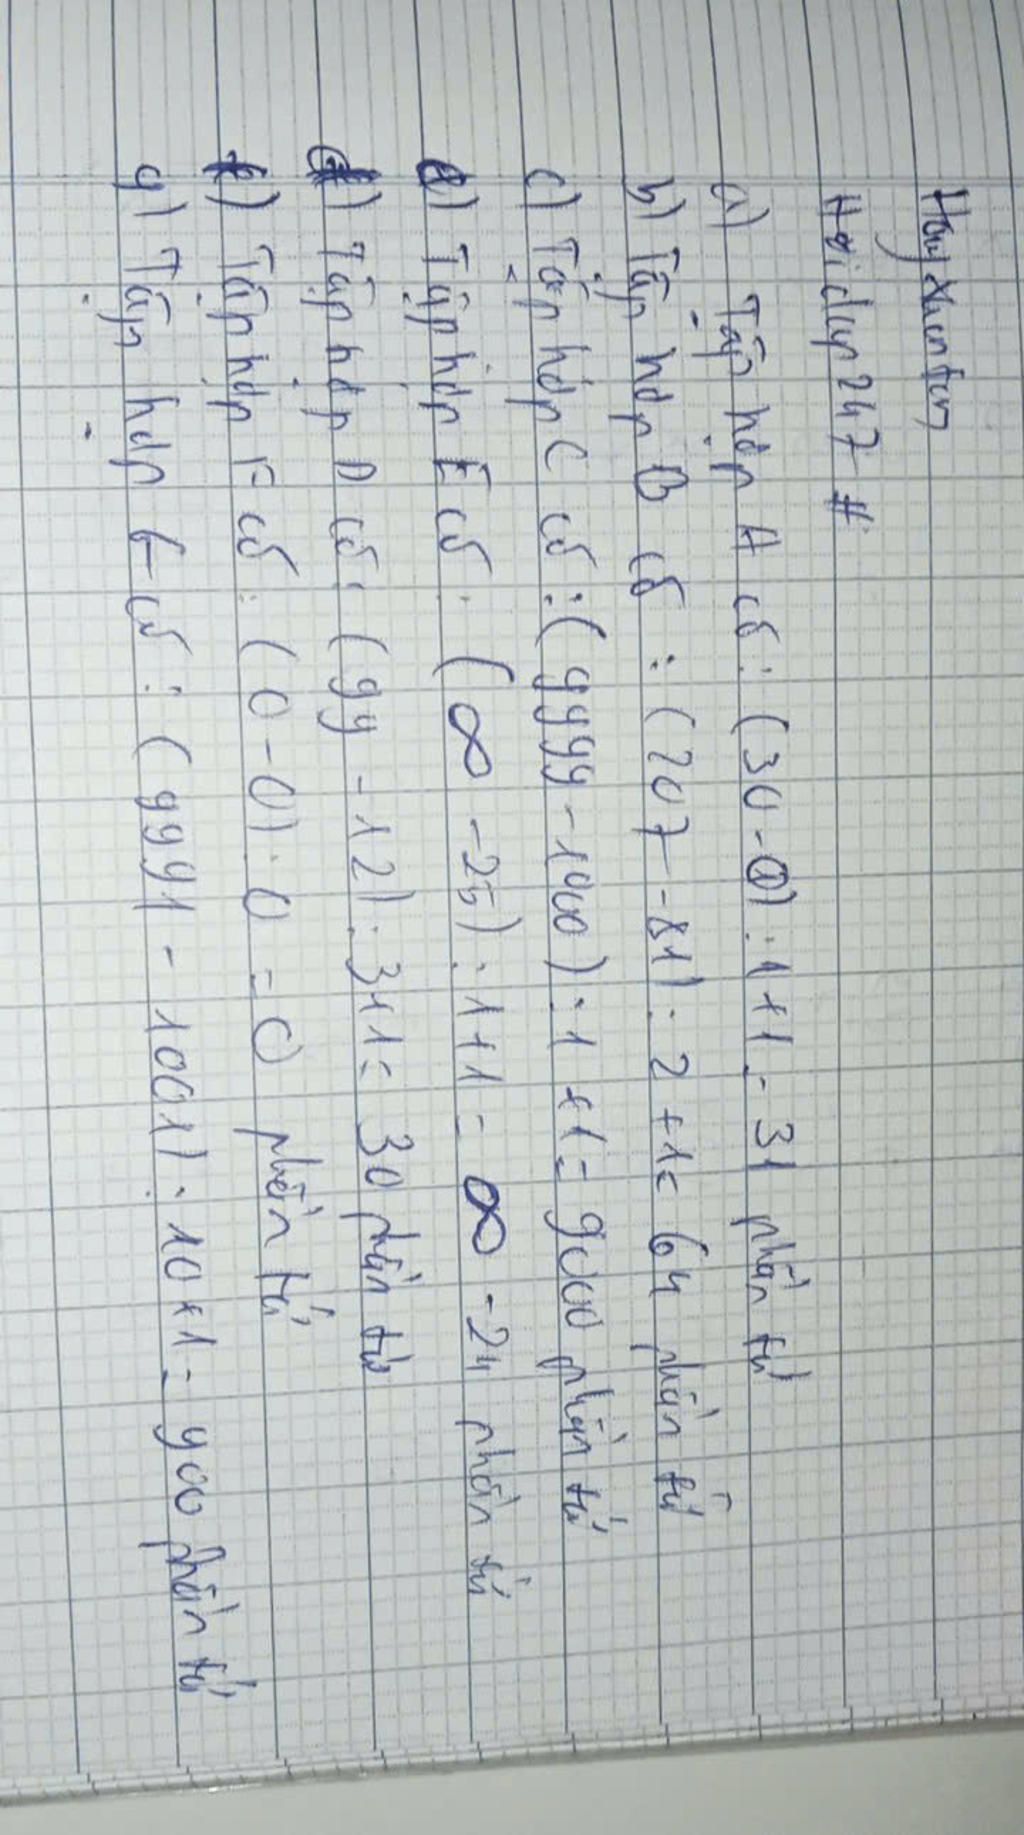 Hoidap247 #
a) Tập hợp A có : (30 - 0) : 1 + 1 = 31 phần tử
b) Tập hợp B có : (207 - 81) : 2 + 1 = 64 phần tử
c) Tập hợp C có : (9999 - 1000) : 1 + 1 = 9000 phần tử
e) Tập hợp E có : (∞ - 25) : 1 + 1 = ∞ - 24 phần tử
) Tập hợp D có : (99 - 12) : 3 + 1 = 30 phần tử
f) Tập hợp F có : (0 - 0) : 0 = 0 phần tử
g) Tập hợp G có : (9991 - 1001) : 10 + 1 = 900 phần tử